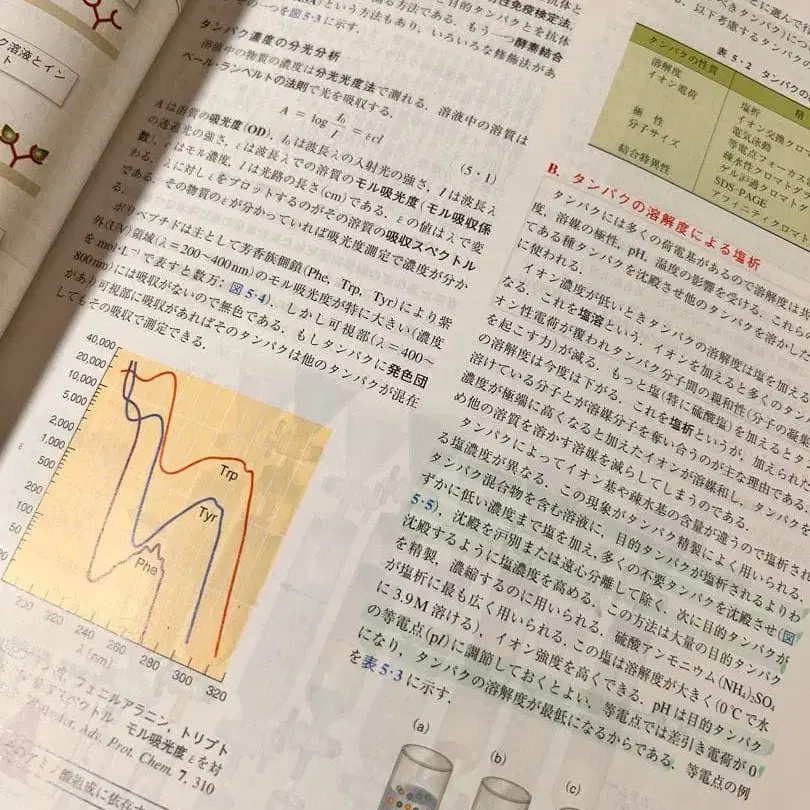 ク溶液とイン
ト
性免疫検定法,
と目的タンパクを抗体
る方法である. もう一つ酵素結合
A)という方法もあり, いろいろな修飾法があ
の一つを図5・3に示す.
タンパク濃度の分光分析
溶液中の物質の濃度は分光光度法で測れる. 溶液中の溶質は
ベール・ランベルトの法則で光を吸収する.
A = log I₀/I = εcl (5・1)
Aは溶質の吸光度(OD), I₀は波長λの入射光の強さ, Iは波長λ
の透過光の強さ, εは波長λでの溶質のモル吸光度(モル吸収係
数), cはモル濃度, lは光路の長さ(cm)である. εの値はλで変
わる. λに対しεをプロットするのがその溶質の吸収スペクトル
である. その物質のεが分かっていれば吸光度測定で濃度が分か
る.
ポリペプチドは主として芳香族側鎖(Phe, Trp, Tyr)により紫
外(UV)領域(λ=200〜400nm)のモル吸光度が特に大きい(濃度
を mol・l⁻¹で表すと数万; 図5・4). しかし可視部(λ=400〜
800nm)には吸収がないので無色である. もしタンパクに発色団
があり可視部に吸収があればそのタンパクは他のタンパクが混在
してもその吸収で測定できる.
40,000
20,000
10,000
5,000
2,000
1,000
500
200
100
50
20
ε
Trp
Tyr
Phe
200 220 240 260 280 300 320
λ(nm)
フェニルアラニン, トリプト
スペクトル. モル吸光度εを対
Adv. Prot. Chem. 7, 310
アミノ酸組成に依存
に選んで行
きタンパク)に
以下考慮するタンパクの
表5・2 タンパクの
タンパクの性質
溶解度
イオン電荷
極性
分子サイズ
結合特異性
塩析
イオン交換クロマ
電気泳動
等電点フォーカス
疎水性クロマト
ゲル沪過クロマト
SDS-PAGE
アフィニティクロマト
B. タンパクの溶解度による塩析
タンパクには多くの荷電基があるので溶解度は共
度, 溶媒の極性, pH, 温度の影響を受ける. これらの
てある種タンパクを沈殿させ他のタンパクを溶かし
に使われる.
イオン濃度が低いときタンパクの溶解度は塩を加える
なる. これを塩溶という. イオンを加えると多くのタン
オン性電荷が覆われタンパク分子間の親和性(分子の凝集
を起こす力)が減る. もっと塩(特に硫酸塩)を加えるとタ
の溶解度は今度は下がる. これを塩析というが, 加えられた
溶けている分子とが溶媒分子を奪い合うのが主な理由である.
濃度が極端に高くなると加えたイオンが溶媒和し, タンパクを
め他の溶質を溶かす溶媒を減らしてしまうのである.
タンパクによってイオン基や疎水基の含量が違うので塩析され
る塩濃度が異なる. この現象がタンパク精製によく用いられる.
タンパク混合物を含む溶液に, 目的タンパクが塩析されるよりわ
ずかに低い濃度まで塩を加え, 多くの不要タンパクを沈殿させ(図
5・5), 沈殿を沪別または遠心分離して除く. 次に目的タンパクが
沈殿するように塩濃度を高める. この方法は大量の目的タンパク
を精製, 濃縮するのに用いられる. 硫酸アンモニウム(NH₄)₂SO₄
が塩析に最も広く用いられる. この塩は溶解度が大きく(0℃で水
に3.9M溶ける), イオン強度を高くできる. pHは目的タンパク
の等電点(pI)に調節しておくとよい. 等電点では差引き電荷が0
になり, タンパクの溶解度が最低になるからである. 等電点の例
を表5・3に示す.
(a)
(b)
(c)